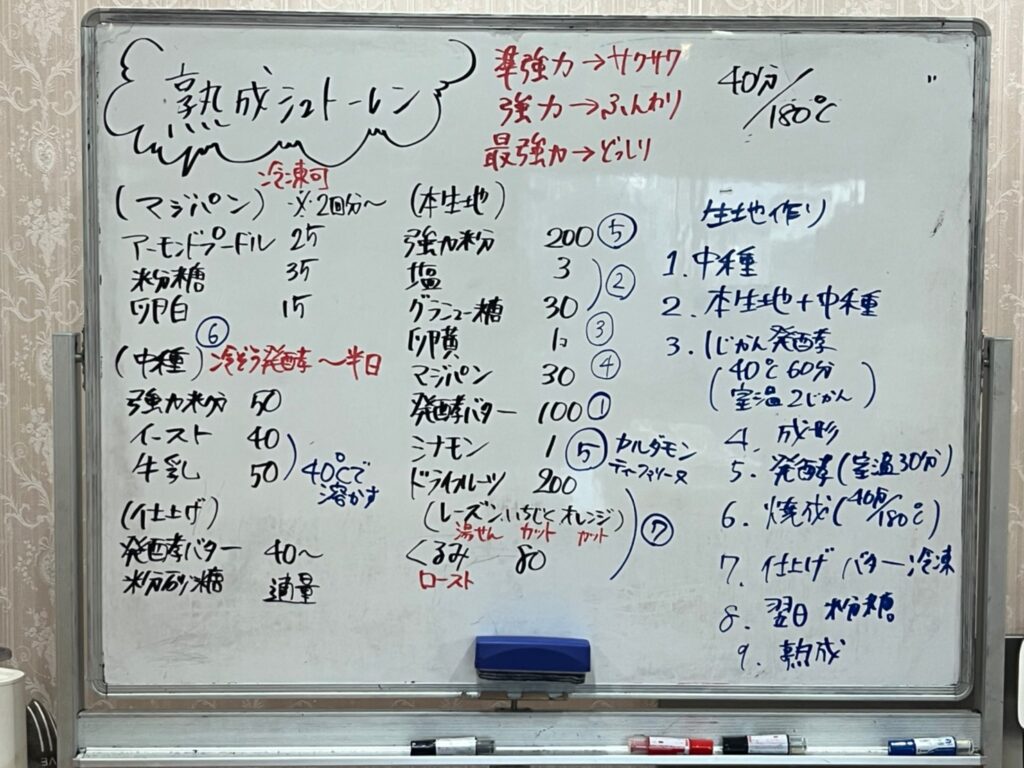 熟成シュトーレン
準強力→サクサク
強力→ふんわり
最強力→どっしり
40分/180℃
冷凍可
(マジパン) ※2回分〜
アーモンドプードル 25
粉糖 35
卵白 15
⑥
(中種) 冷ぞう発酵〜半日
強力粉 50
イースト 40
牛乳 50
40℃で
溶かす
(仕上げ)
発酵バター 40〜
粉砂糖 適量
(本生地)
強力粉 200 ⑤
塩 3
②
グラニュー糖 30
卵黄 1コ ③
マジパン 30 ④
発酵バター 100 ①
シナモン 1 ⑤ カルダモン
ドライフルーツ 200
(レーズン、いちじく オレンジ)
湯せん カット カット
⑦
くるみ 80
ロースト
生地作り
1. 中種
2. 本生地+中種
3. 1じかん発酵
(40℃ 60分
室温2じかん)
4. 成形
5. 発酵(室温30分)
6. 焼成(40分/180℃)
7. 仕上げ バター冷凍
8. 翌日 粉糖
9. 熟成